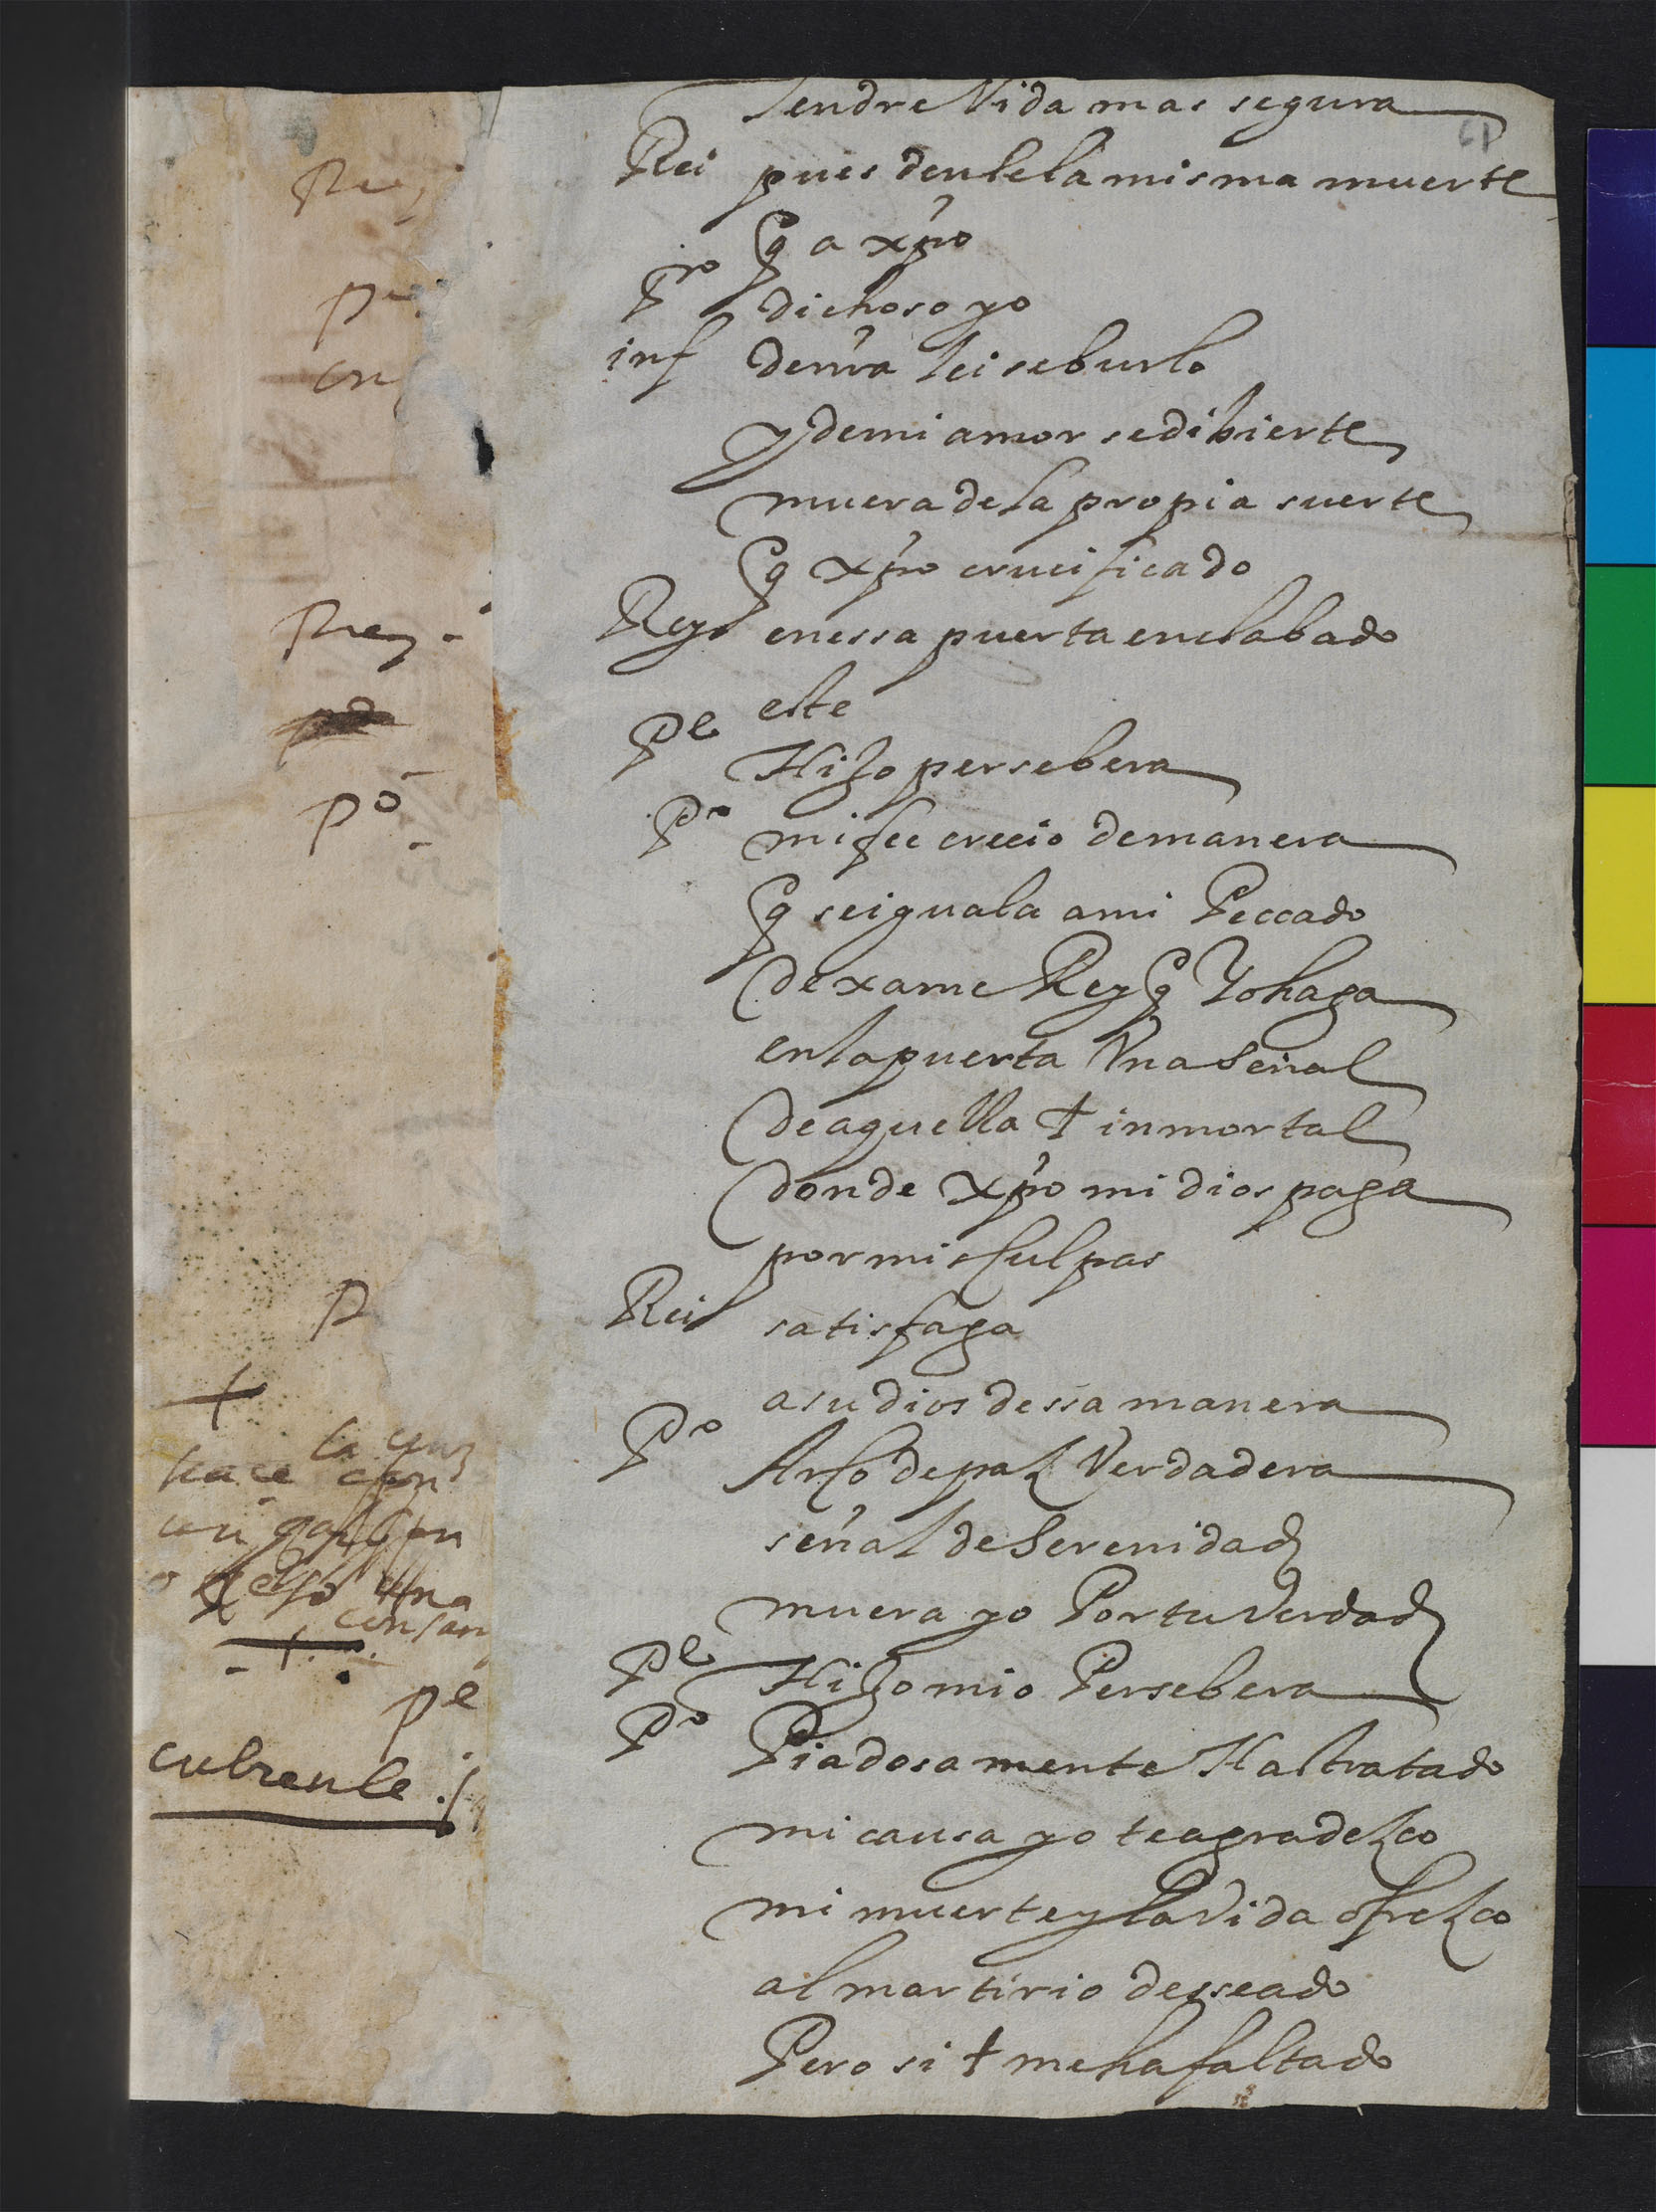 tendre Vida mas segura
61
Rei pues denle la misma muerte
q a xpo
Pro dichoso yo
inf de nra lei se burlo
y de mi amor se dibierte
muera de la propia suerte
q xpo crucificado
Rey en essa puerta enclabado
este
Pe Hijo persebera
Po mi fee crecio de manera
q se iguala a mi Peccado
dexame Rey q Yo haga
en la puerta Vna señal
de aquella † inmortal
donde xpo mi dios paga
por mis culpas
Rei satisfaga
a su dios dessa manera
Po Arco de paz Verdadera
señal de Serenidad
muera yo Por tu Verdad
Pe Hijo mio Persebera
Po Piadosamente Has tratado
mi causa yo te agradezco
mi muerte y la Vida ofrezco
al martirio desseado
Pero si † me ha faltado
Rey
po
Rey
po
P
+
hace la cruz
con
una
con san
pe
cubrenle